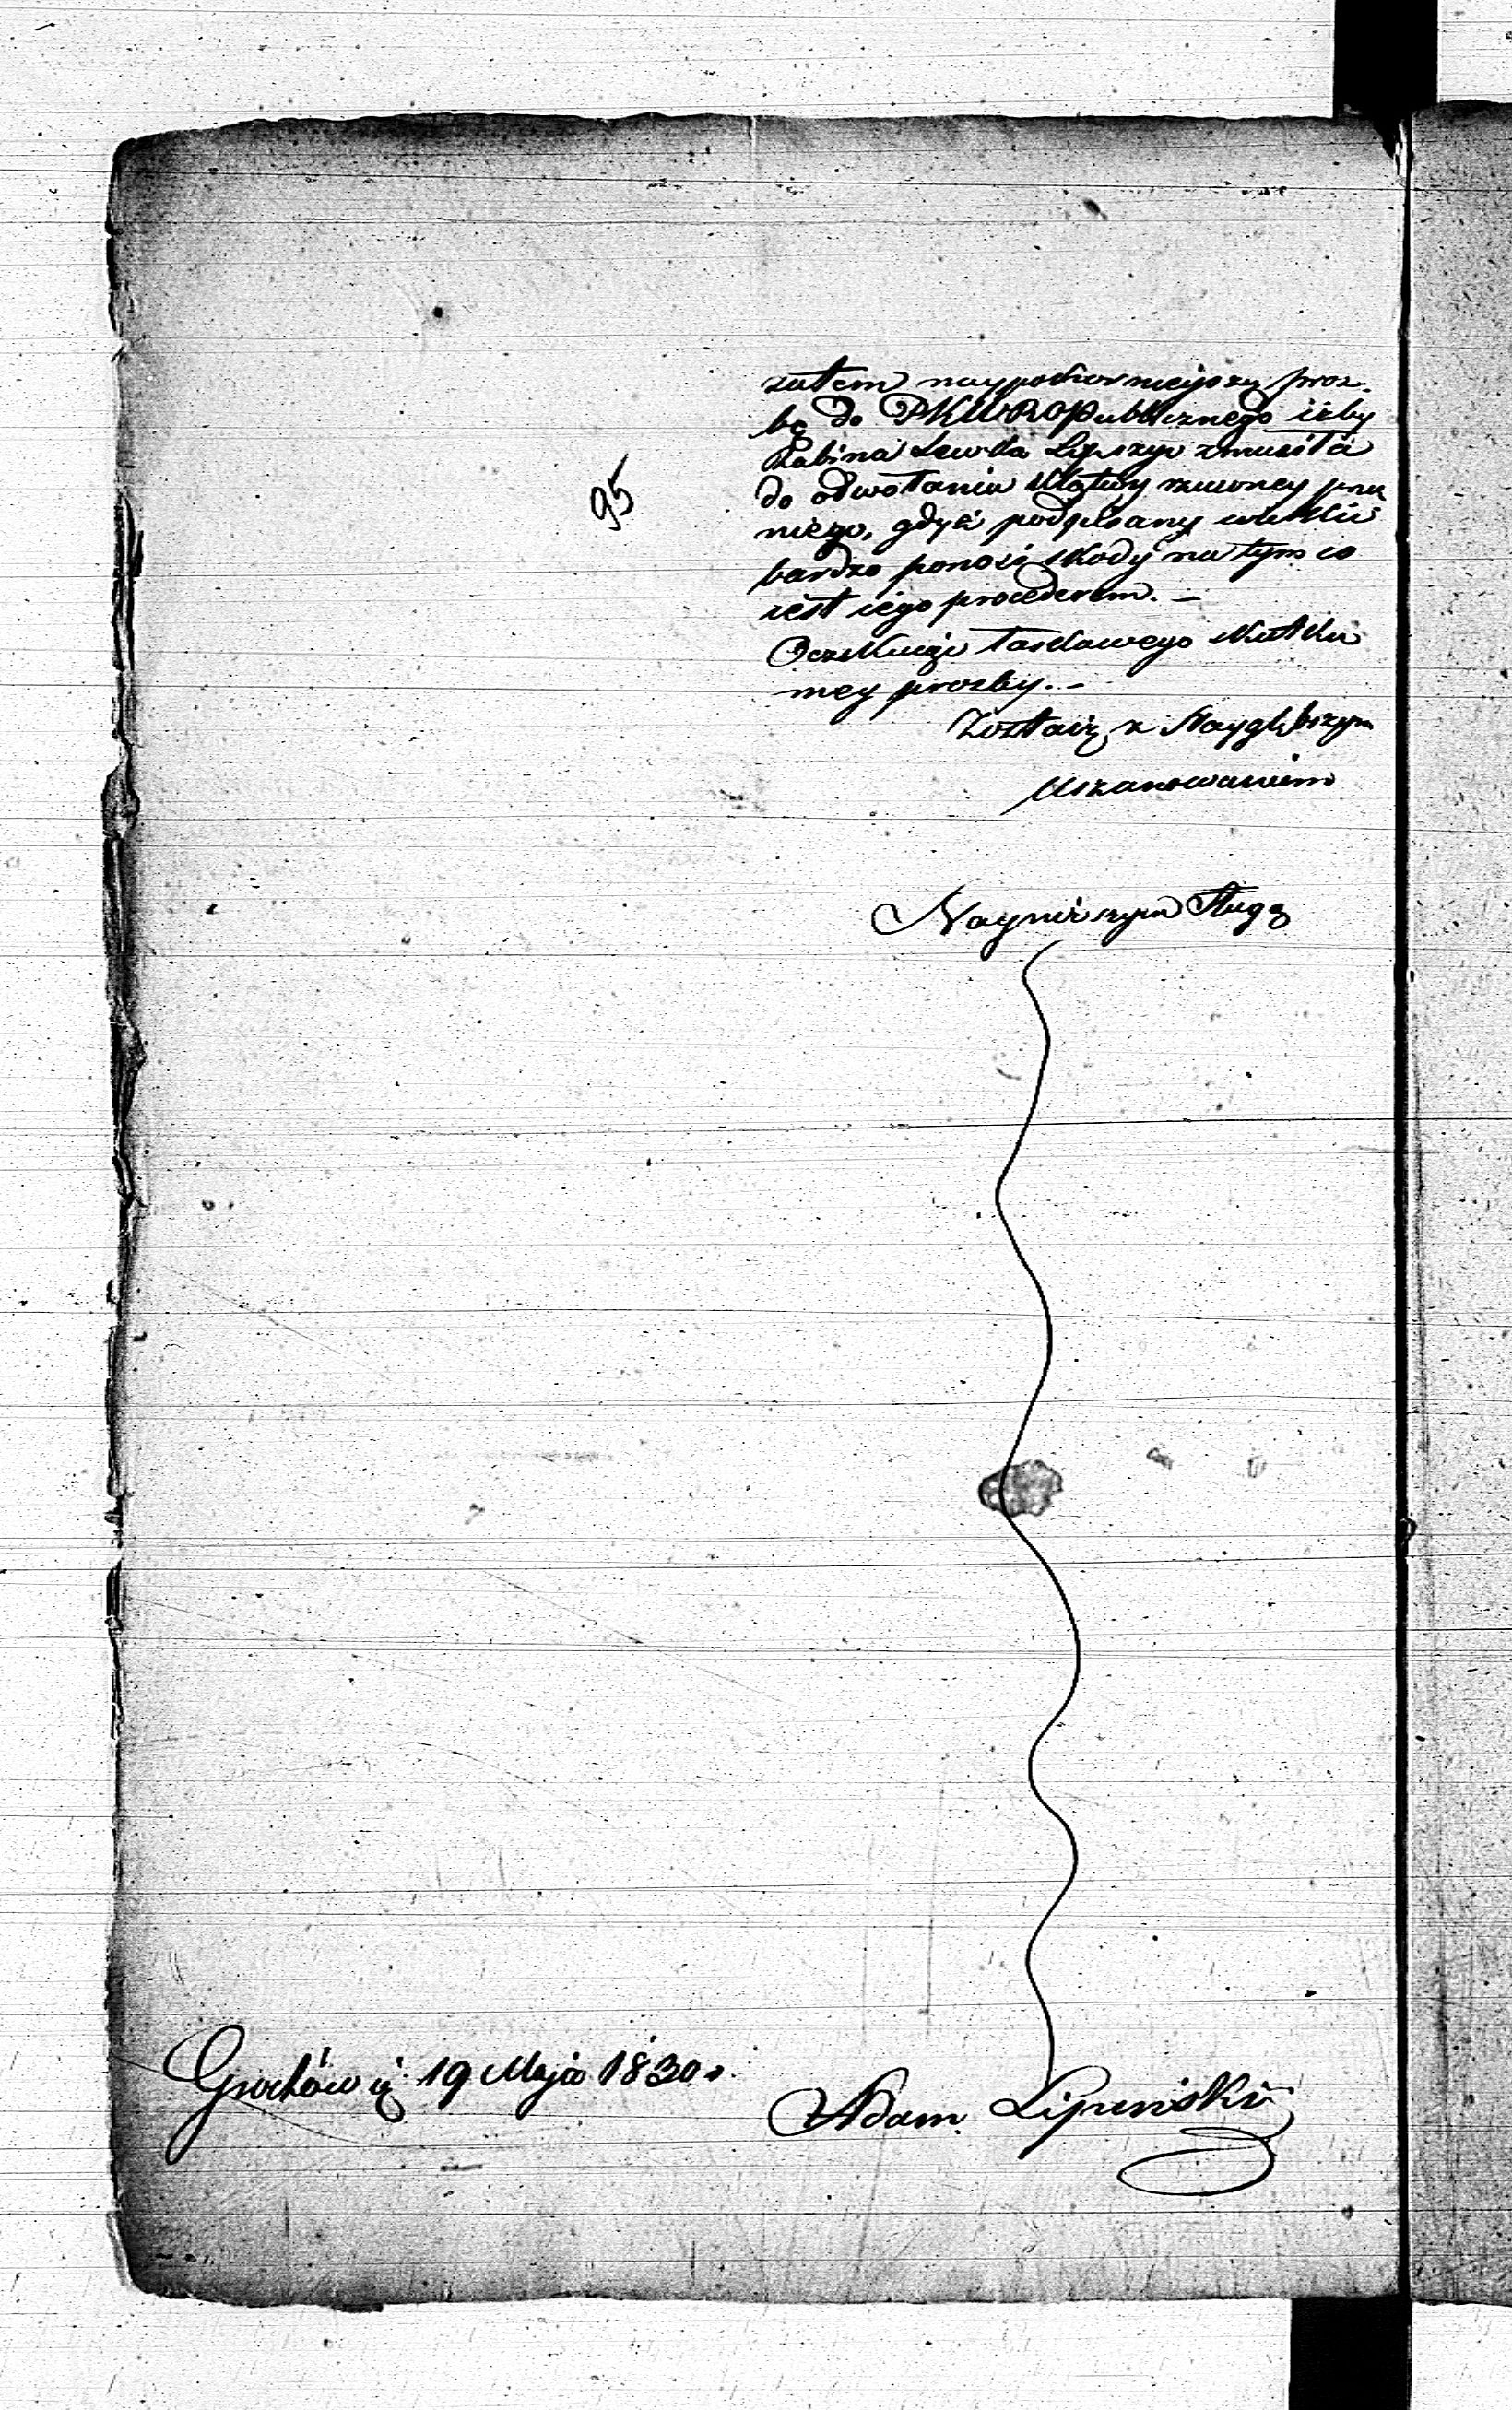 zatem naypokorniejszą proź-
bę do PKWROPublicznego iżby
Rabina Lewka Lipszyc zmusiła
do odwołania klątwy rzuconey prze
niego, gdyż podpisany wielkie
bardzo ponosi skody na tym co
iest iego procederem. –
Oczekuiąc łaskawego skutku
mey prozby. –
Zostaię z Nayglębszym
Uszanowaniem
95
Nayniższym Sługą
Grochów d. 19 Maja 1830 r.
Adam Lipinski